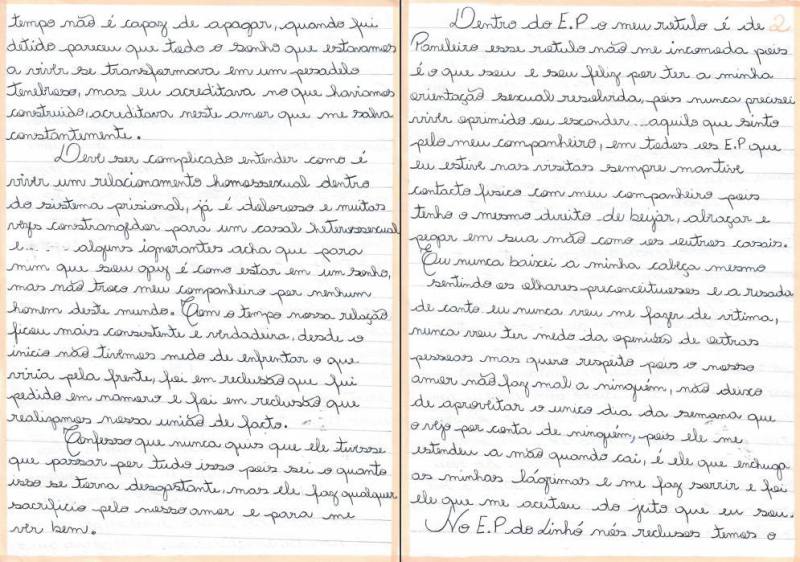 tempo não é capaz de apagar, quando fui
detido pareceu que todo o sonho que estavamos
a viver se transformava em um pesadelo
tenebroso, mas eu acreditava no que haviamos
construido, acreditava neste amor que me salva
constantemente.
Deve ser complicado entender como é
viver um relacionamento homossexual dentro
do sistema prisional, já é doloroso e muitas
vezes constrangedor para um casal heterossexual
e..... alguns ignorantes acha que para
mim que sou gay é como estar em um sonho,
mas não troco meu companheiro por nenhum
homem deste mundo. Com o tempo nossa relação
ficou mais consistente e verdadeira, desde o
inicio não tivemos medo de enfrentar o que
viria pela frente, foi em reclusão que fui
pedido em namoro e foi em reclusão que
realizamos nossa união de facto.
Confesso que nunca quis que ele tivesse
que passar por tudo isso pois sei o quanto
isso se torna desgastante, mas ele faz qualquer
sacrificio pelo nosso amor e para me
ver bem.
2
Dentro do E.P o meu rotulo é de
Paneleiro esse rotulo não me incomoda pois
é o que sou e sou feliz por ter a minha
orientação sexual resolvida, pois nunca precisei
viver oprimido ou esconder... aquilo que sinto
pelo meu companheiro, em todos os E.P que
eu estive nas visitas sempre mantive
contacto fisico com meu companheiro pois
tenho o mesmo direito de beijar, abraçar e
pegar em sua mão como os outros casais.
Eu nunca baixei a minha cabeça mesmo
sentindo os olhares preconceituosos e a risada
de canto eu nunca vou me fazer de vitima,
nunca vou ter medo da openião de outras
pessoas mas quero respeito pois o nosso
amor não faz mal a ninguém, não deixo
de aproveitar o unico dia da semana que
o vejo por conta de ninguém, pois ele me
estendeu a mão quando cai, é ele que enchuga
as minhas lágrimas e me faz sorrir e foi
ele que me aceitou do jeito que eu sou.
No E.P do Linhó nós reclusos temos o